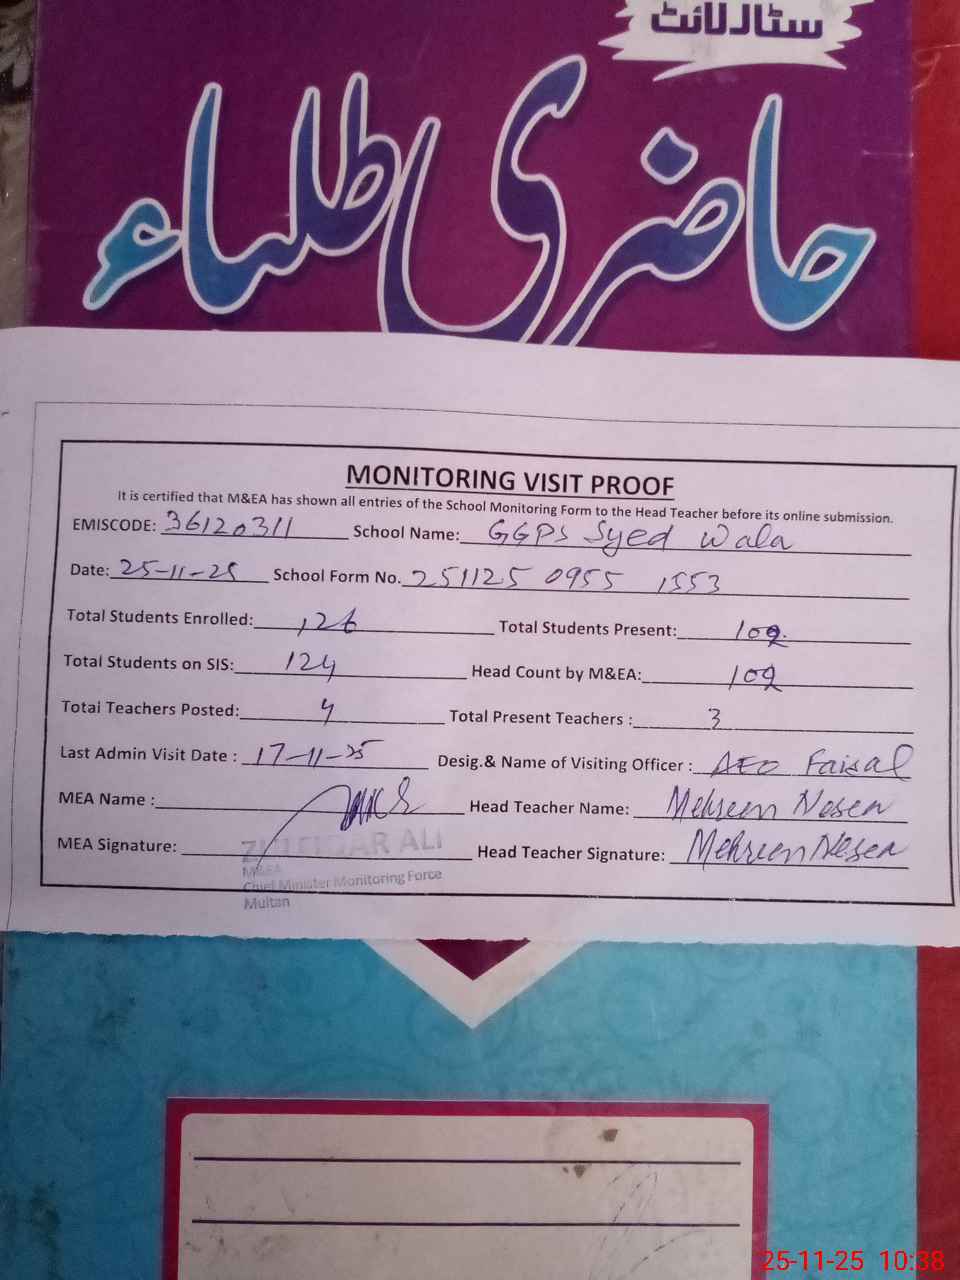 سٹار لائٹ
حاضری طلباء
MONITORING VISIT PROOF
It is certified that M&EA has shown all entries of the School Monitoring Form to the Head Teacher before its online submission.
EMISCODE: 36120311 School Name: GGPS Syed Wala
Date: 25-11-25 School Form No. 251125 0955 1553
Total Students Enrolled: 126 Total Students Present: 109
Total Students on SIS: 124 Head Count by M&EA: 109
Total Teachers Posted: 4 Total Present Teachers : 3
Last Admin Visit Date : 17-11-25 Desig.& Name of Visiting Officer : AEO Faisal
MEA Name : Head Teacher Name: Mehreen Nesen
MEA Signature: Head Teacher Signature: Mehreen Nesen
ZULFIQAR ALI
M&EA
Chief Minister Monitoring Force
Multan
25-11-25 10:38